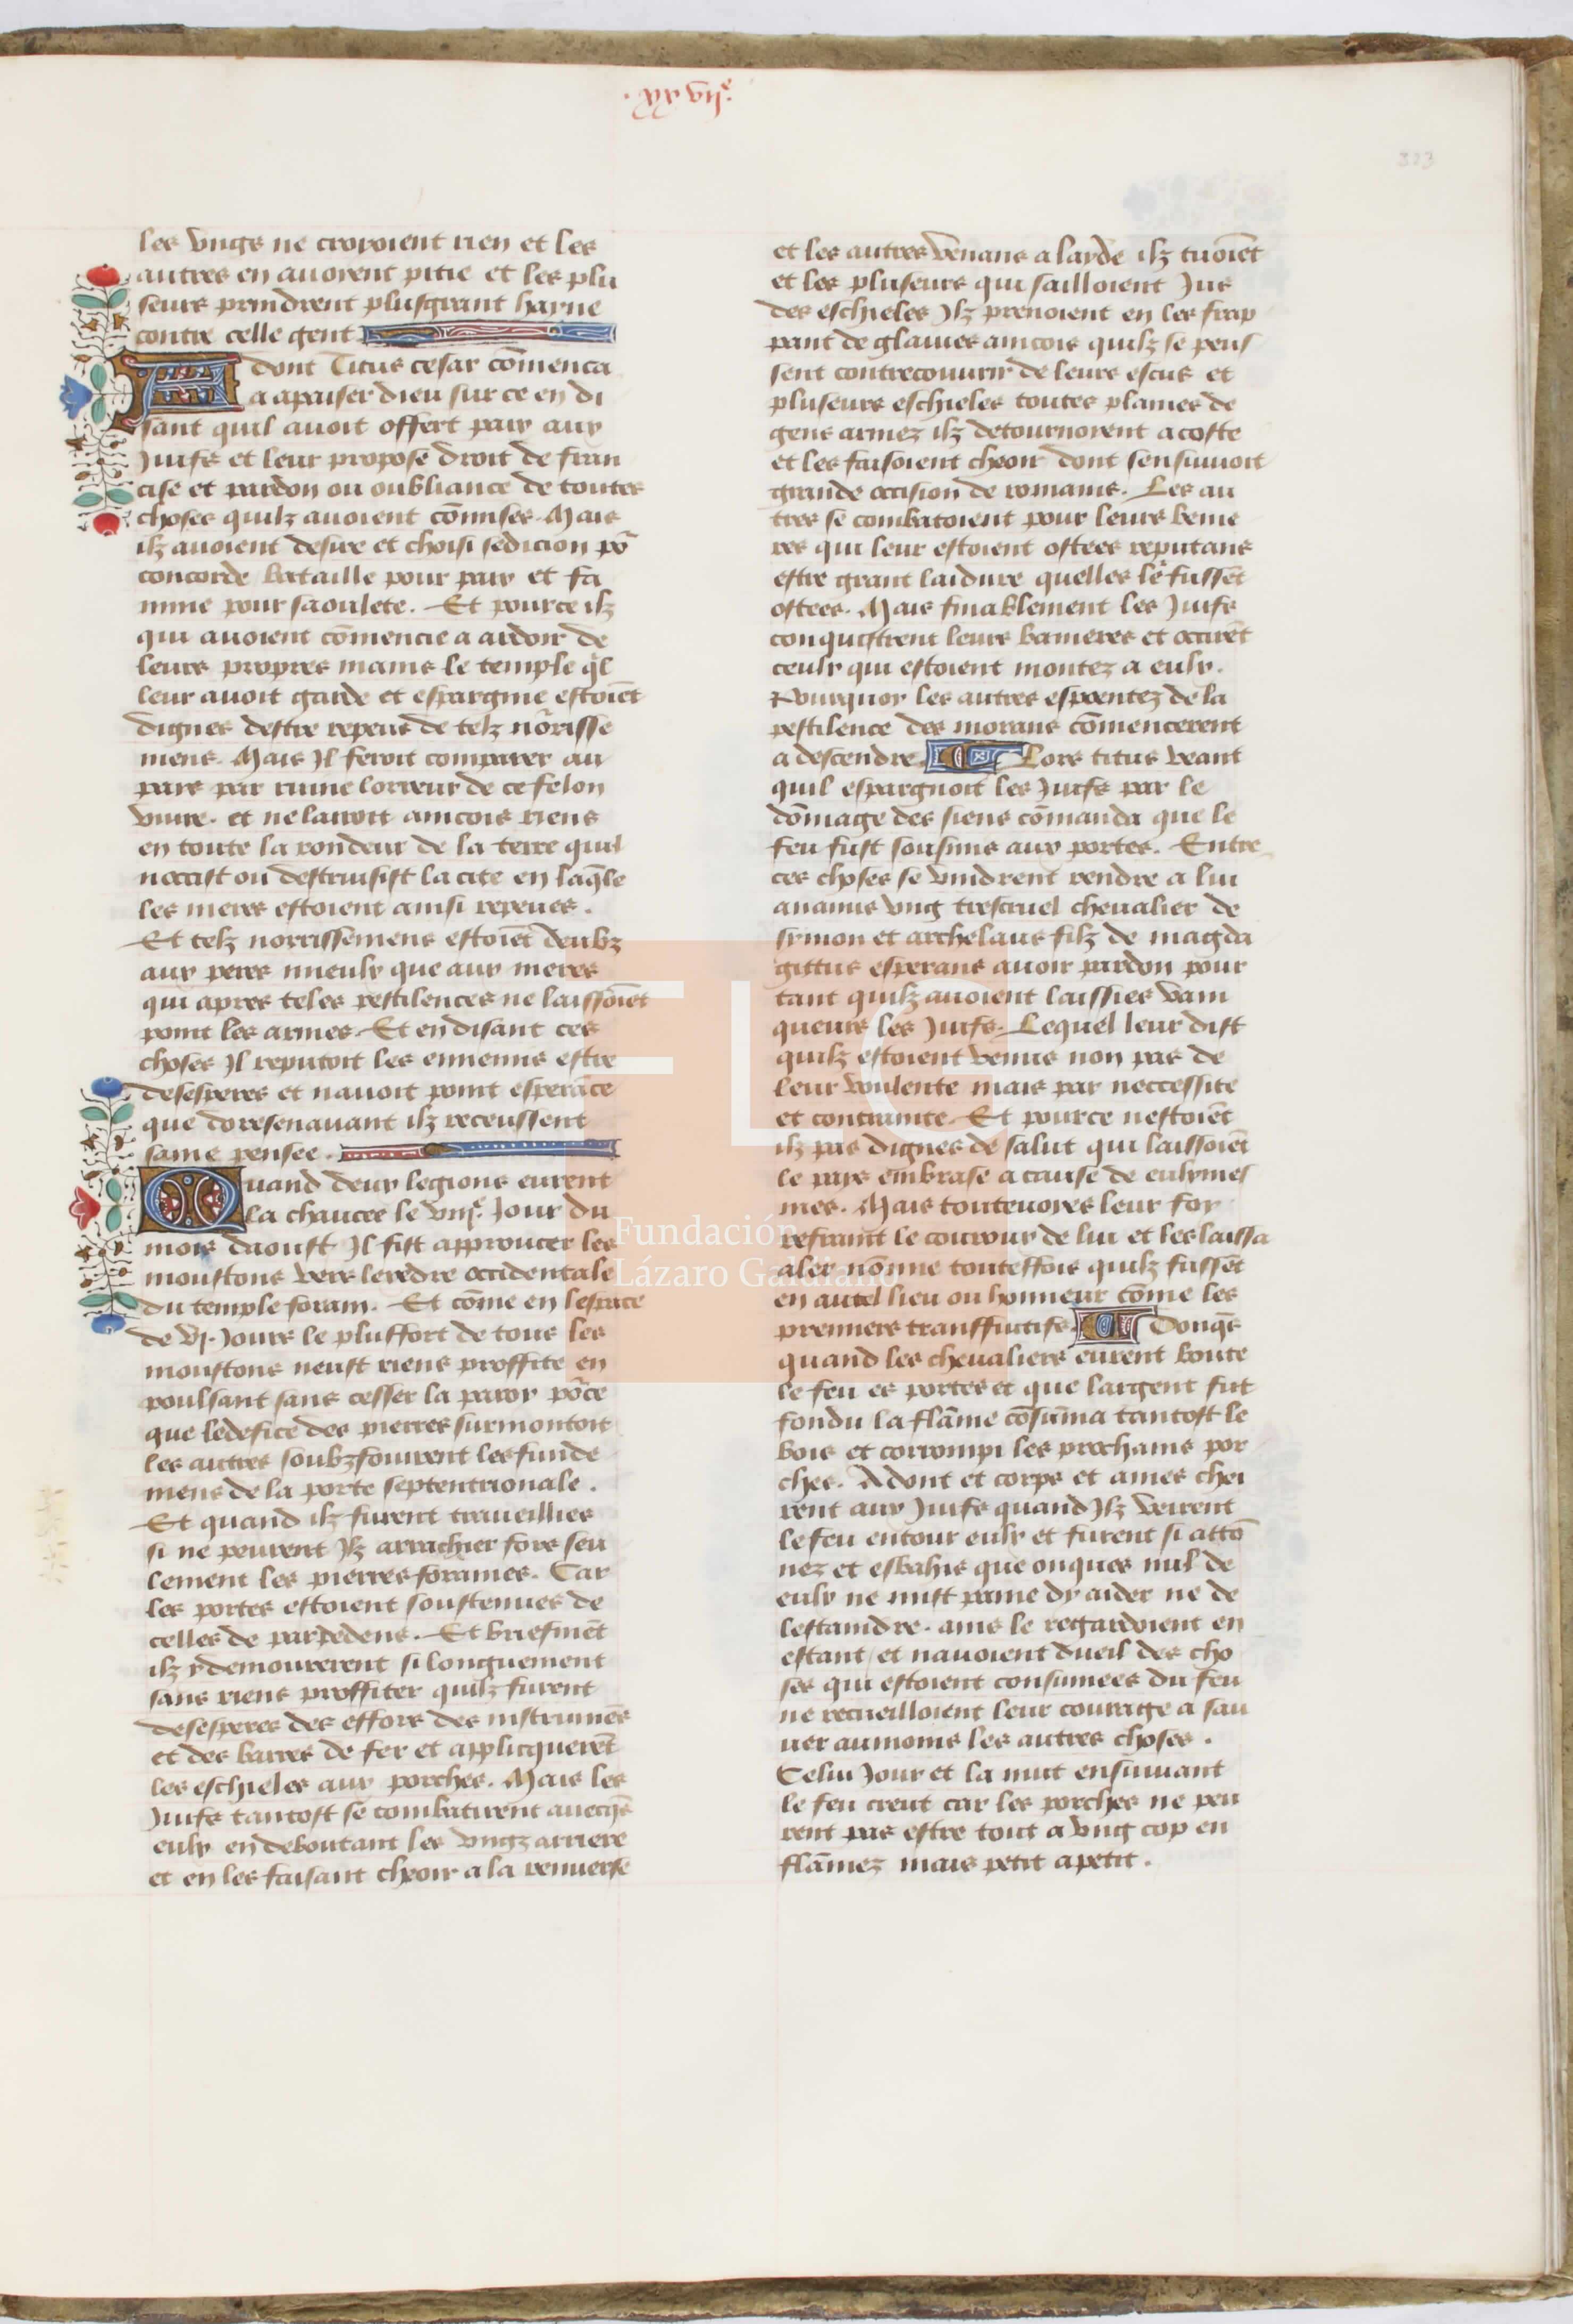 .xxvije.
323
les vngs ne croyoient rien et les
autres en auoyent pitie et les plu
seurs prindrent plusgrant hayne
contre celle gent
Adont Titus cesar cōmenca
a apaiser dieu sur ce en di
sant quil auoit offert paix aux
Juifs et leur propose droit de fran
cise et pardon ou oubliance de toutes
choses quilz auoient cōmises. Mais
ilz auoient desire et choisi sedicion po᷒
concorde bataille pour paix et fa
mine pour saoulete. Et pource ilz
qui auoient cōmencie a ardoir de
leurs propres mains le temple q̄l
leur auoit garde et espargnie estoiēt
dignes destre repeus de telz nōrisse
mens. Mais Jl feroit comparer au
pays par ruine lorreur de ce felon
viure. et ne lairoit aincois riens
en toute la rondeur de la terre quil
noccist ou destruisist la cite en laq̄le
les meres estoient ainsi repeues.
Et telz norrissemens estoiēt deubz
aux peres mieulx que aux meres
qui apres teles pestilences ne laissoiēt
point les armes. Et en disant ces
choses Jl reputoit les ennemis estre
desesperes et nauoit point esperāce
que doresenauant ilz receussent
saine pensee.
Quand deux legions eurent
la chaucee le viije. Jour du
mois daoust Jl fist approucer les
moustons vers leredre occidentale
du temple forain. Et cōme en lespace
de vj. Jours le plussort de tous les
moustons neust riens proffite en
poulsant sans cesser la paroy po᷒ce
que ledefice des pierres surmontoit
les autres soubzfouirent les funde
mens de la porte septentrionale.
Et quand ilz furent traueillies
si ne peurent Jlz arrachier fors seu
lement les pierres foraines. Car
les portes estoient soustenues de
celles de par dedens. Et briefmēt
ilz y demourerent si longuement
sans riens proffiter quilz furent
desesperes des effors des instrumēs
et des barres de fer et applicquerēt
les eschieles aux porches. Mais les
Juifs tantost se combatirent auecq̄s
eulx en deboutant les vngz arriere
et en les faisant cheoir a la renuerse
et les autres venans a layde ilz tuoiēt
et les pluseurs qui sailloient Jus
des eschieles Jlz prenoient en les frap
pant de glaiues aincois quilz se peus
sent contrecouurir de leurs escus et
pluseurs eschieles toutes plaines de
gens armez ilz detournoyent a coste
et les faisoient cheoir dont sensiuuoit
grande occision de romains. Les au
tres se combatoient pour leurs banie
res qui leur estoient ostees reputans
estre grant laidure quelles leur fussēt
ostees. Mais finablement les Juifs
conquistrent leurs banieres et occirēt
ceulx qui estoient montez a eulx.
Pourquoy les autres espoentez de la
pestilence des morans cōmencerent
a descendre. Lors titus veant
quil espargnoit les Juifs par le
dōmage des siens cōmanda que le
feu fust soubsmis aux portes. Entre
ces choses se vindrent rendre a lui
ananus vng trescruel chevalier de
symon et archelaus filz de magda
gittus esperans auoir pardon pour
tant quilz auoient laissies vain
queurs les Juifs. Lequel leur dist
quilz estoient venus non pas de
leur voulente mais par neccessite
et contrainte. Et pource nestoiēt
ilz pas dignes de salut qui laissoiēt
le pays embrase a cause de eulxmes
mes. Mais toutteuoyes leur foy
refraint le courroux de lui et les laissa
aler nōmie touteffois quilz fussēt
en autel lieu ou honneur cōme les
premiers transfuitifs. Donq̄s
quand les chevaliers eurent boute
le feu es portes et que largent fut
fondu la flāme cōsūma tantost le
bois et corrompi les prochains por
ches. Adont et corps et ames chei
rent aux Juifs quand Jlz veirent
le feu entour eulx et furent si attō
nez et esbahis que onques nul de
eulx ne mist paine dy aider ne de
lestaindre. ains le regardoient en
estant et nauoient dueil des cho
ses qui estoient consumees du feu
ne recueilloient leur courage a sau
uer aumoins les autres choses.
Celui Jour et la nuit ensiuuant
le feu creut car les porches ne peu
rent pas estre tout a vng cop en
flāmez mais petit a petit.
FLG
Fundación
Lázaro Galdiano